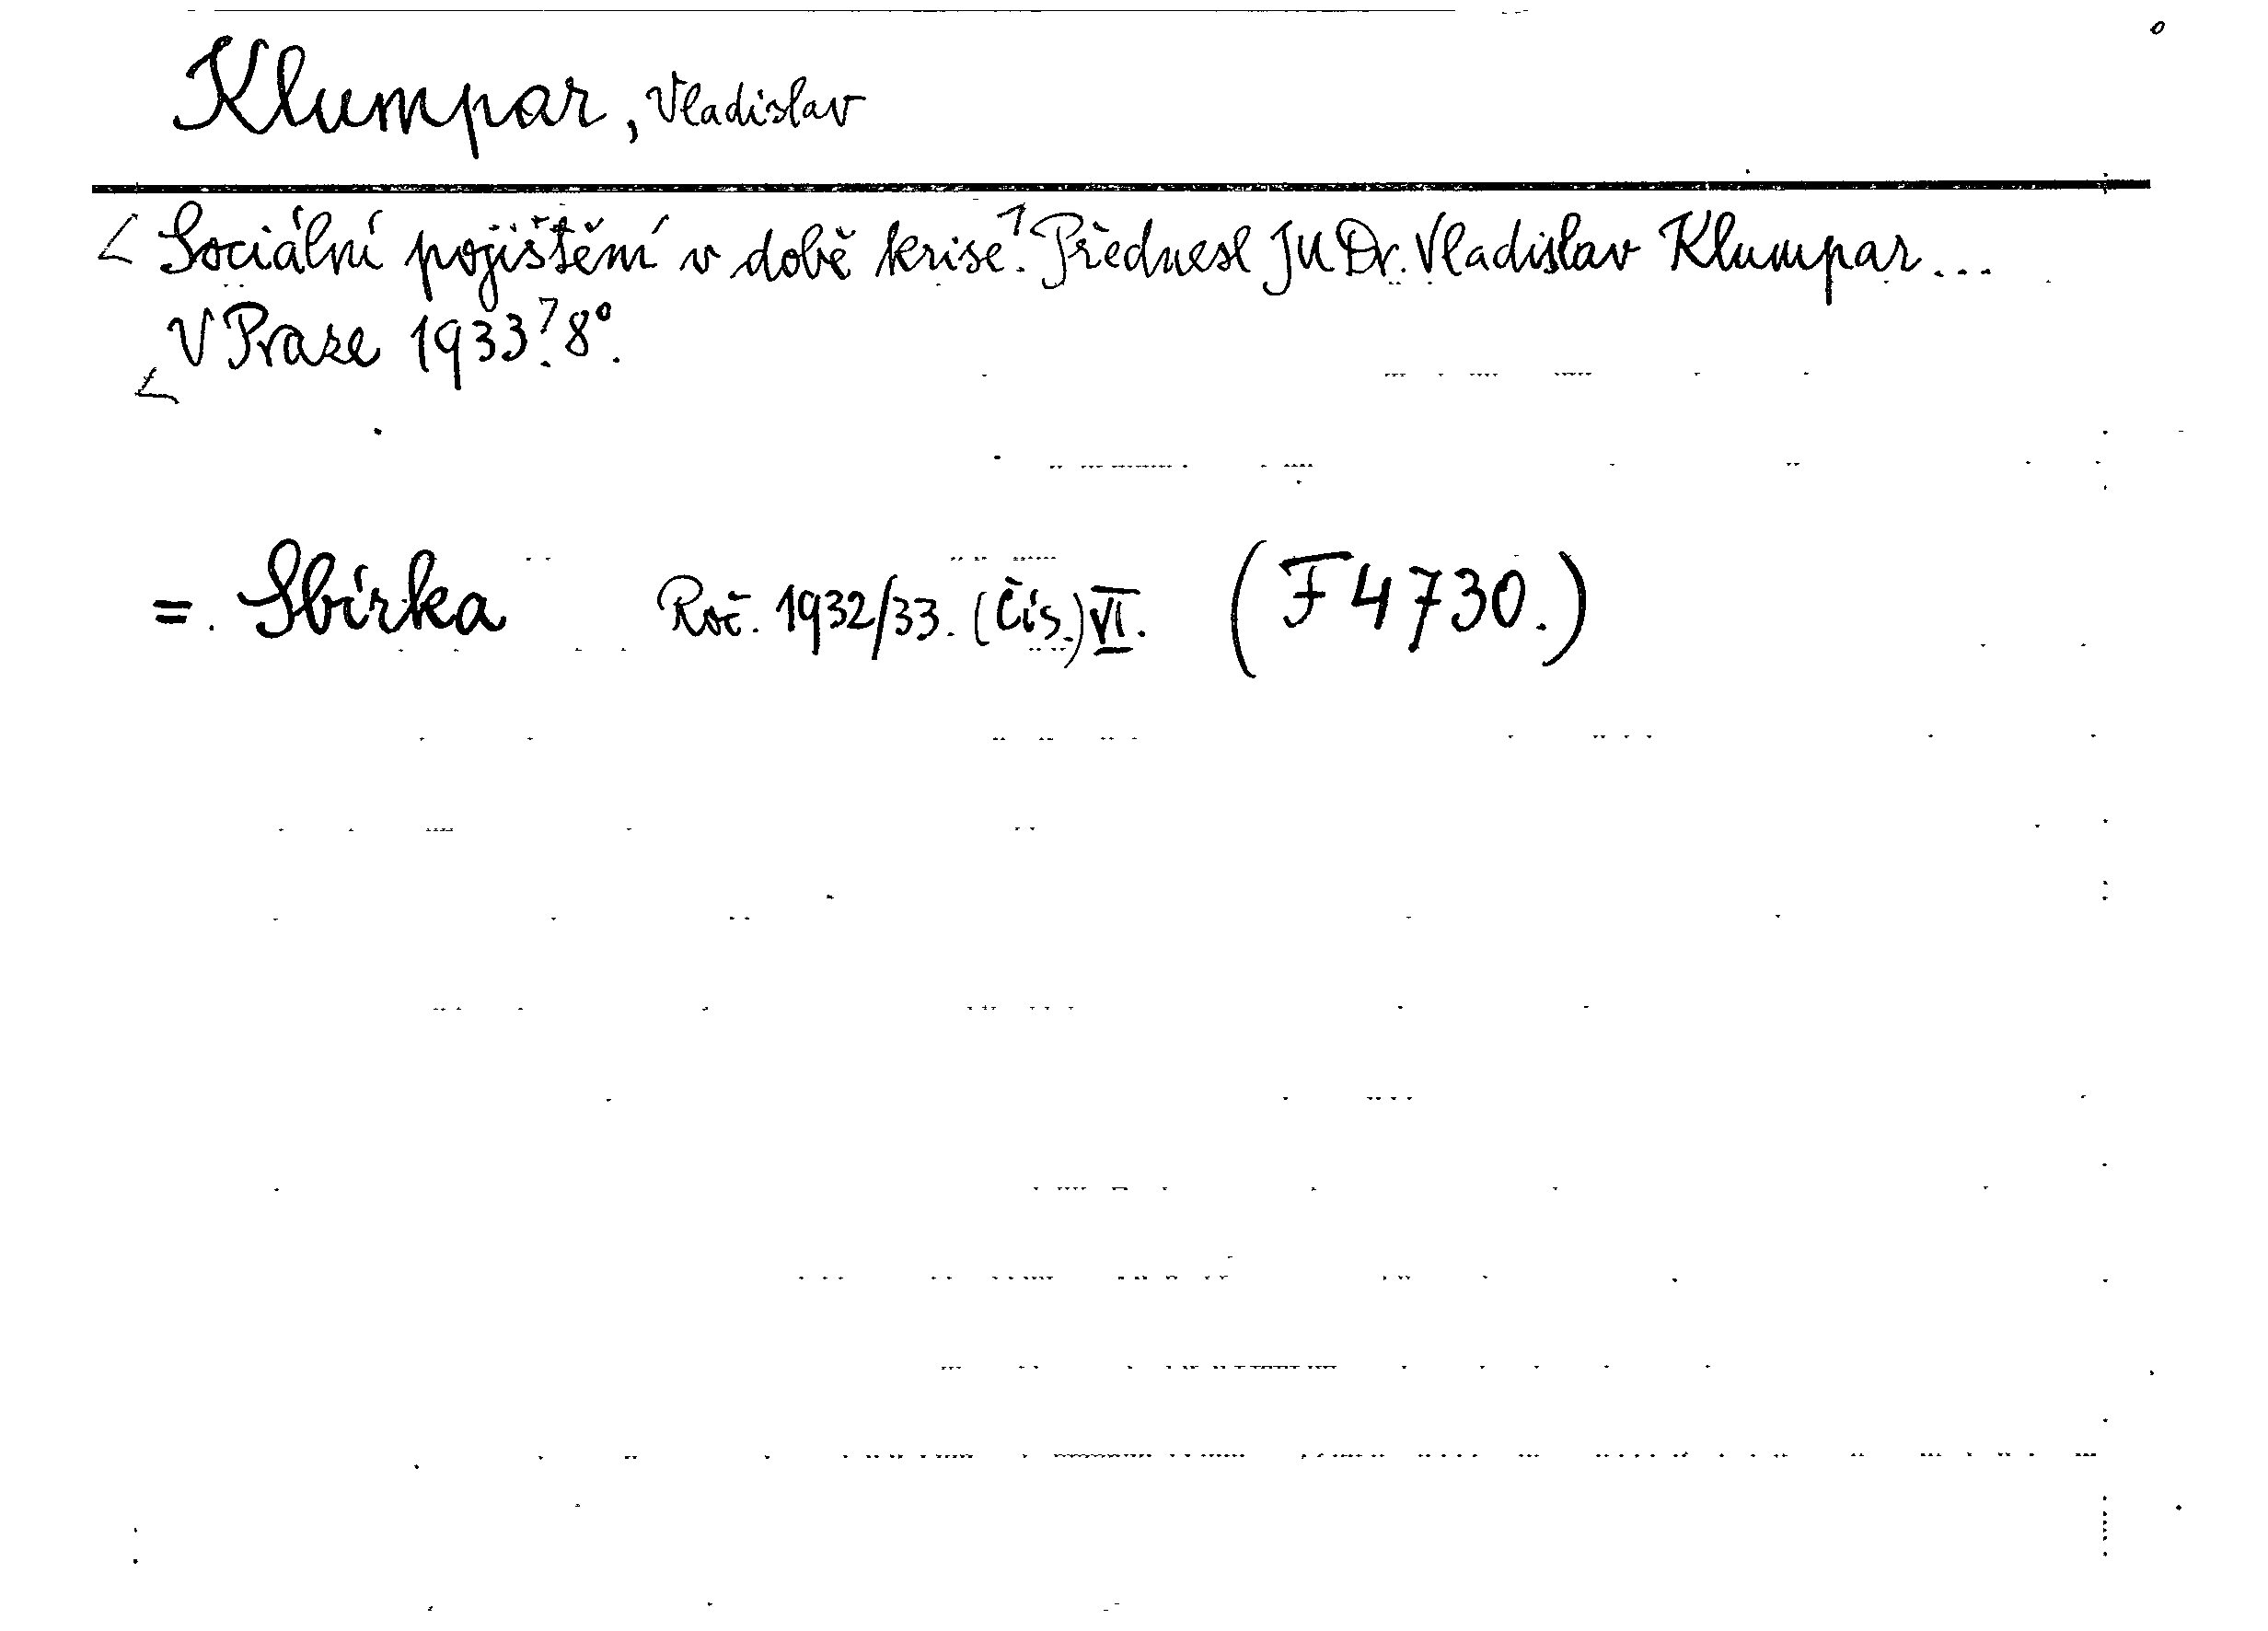 Klumpar, Vladislav
Sociální pojištění v době krise. Přednesl JUDr. Vladislav Klumpar...
V Praze 1933. 8°.
= Sbírka Roč. 1932/33. (Čís.) VI. (F 4730.)